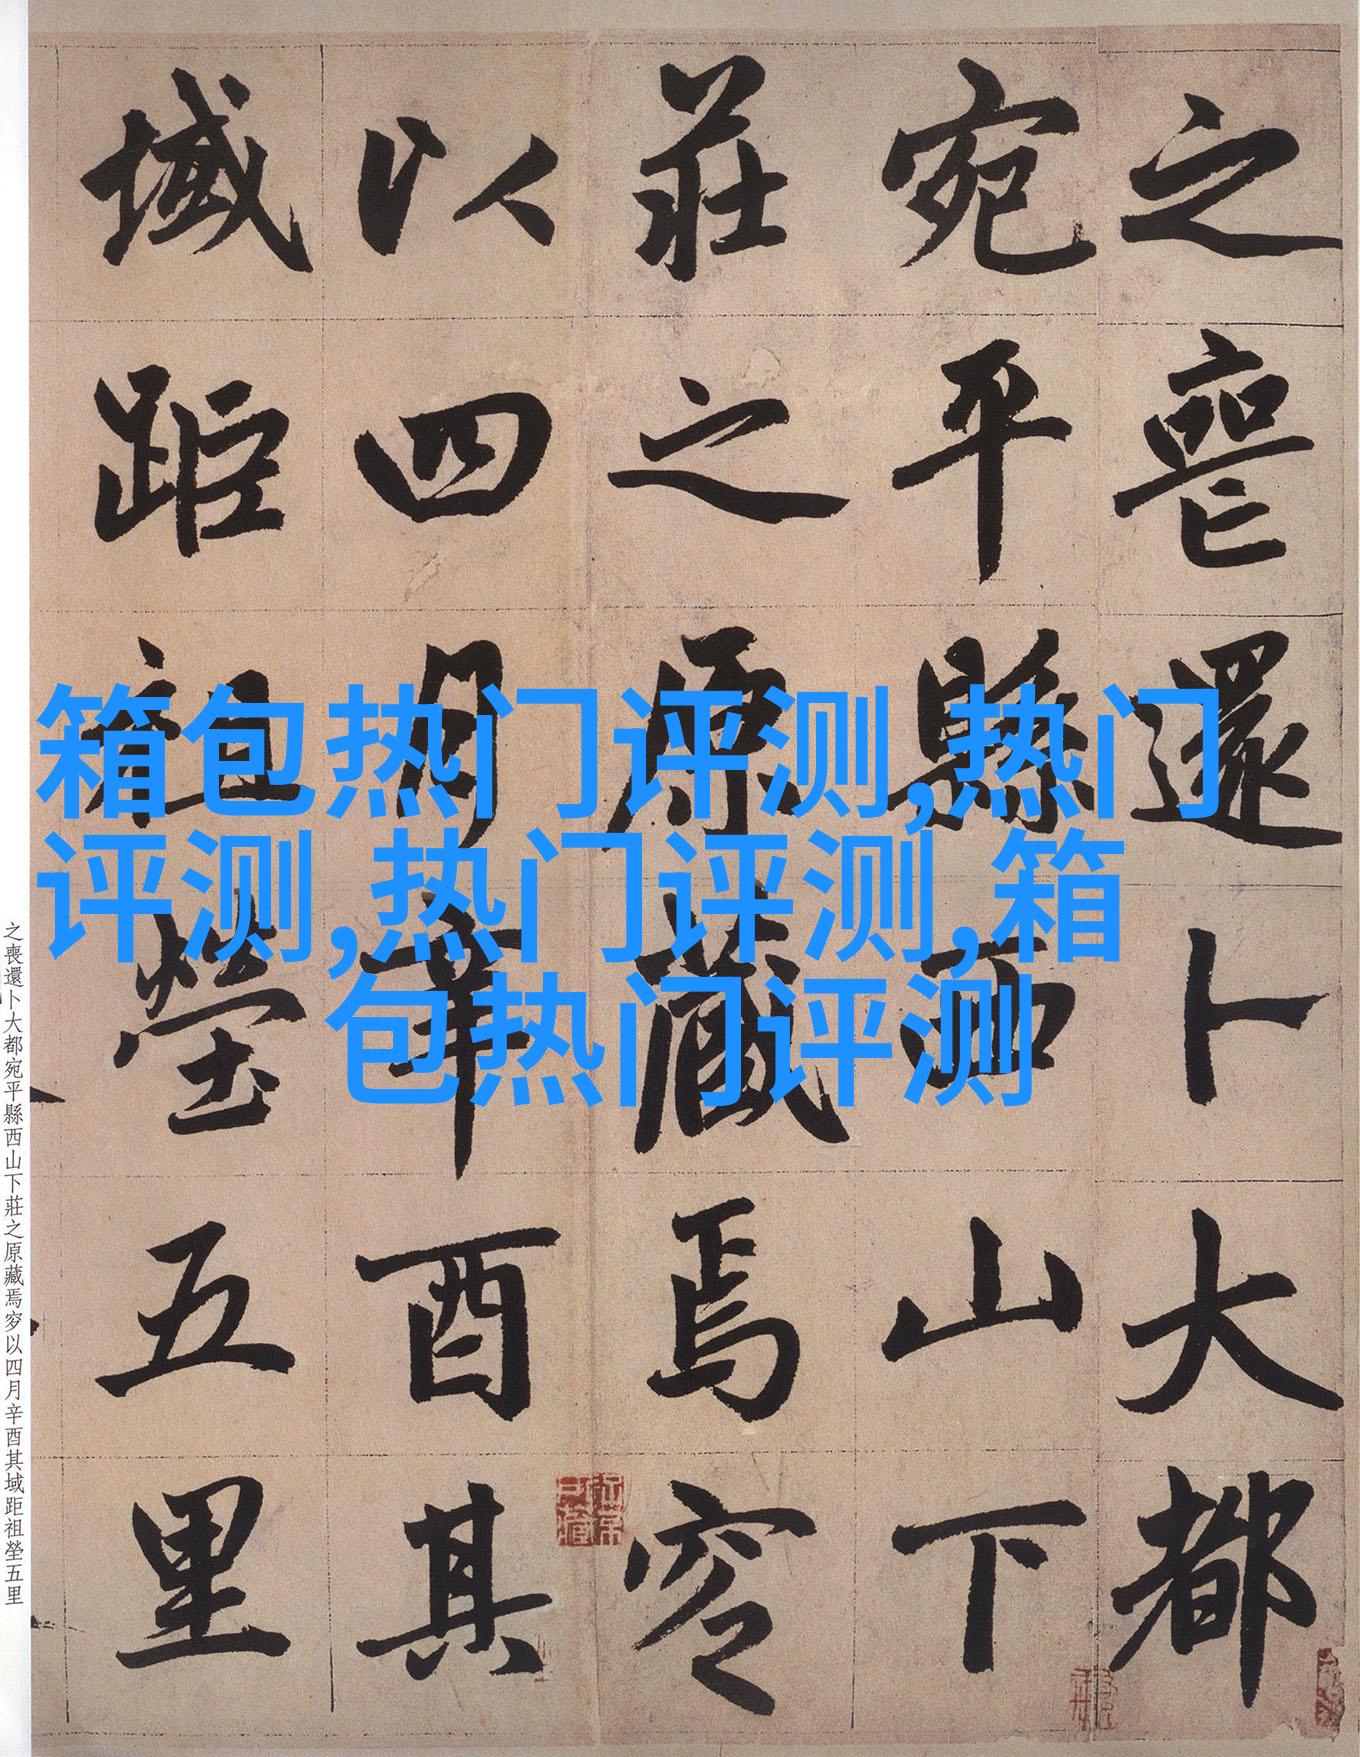 之喪還卜大都
宛平縣西山下
莊之原藏焉穸
以四月辛酉其
域距祖塋五里
箱包热门评测,热门
评测,热门评测,箱
包热门评测
之喪還卜大都宛平縣西山下莊之原藏焉穸以四月辛酉其域距祖塋五里